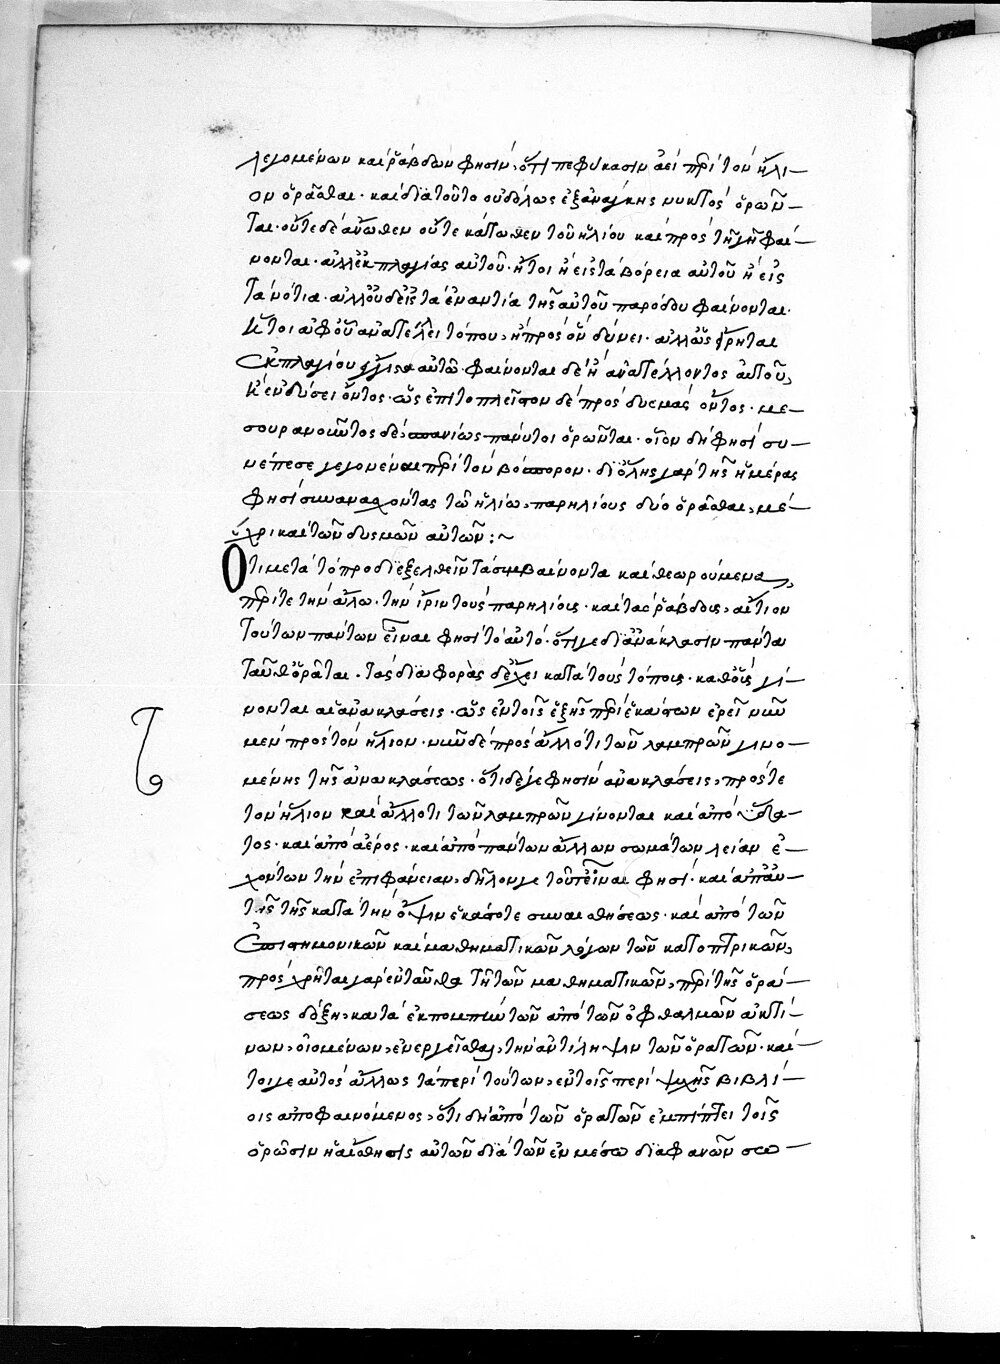 λεγομένων καὶ ῥάβδων φησὶν, ὅτι πεφύκασιν ἀεὶ περὶ τὸν ἥλι-
ον ὁρᾶσθαι· καὶ διατοῦτο οὐδόλως ἐξανάγκης νυκτὸς ὁρῶν-
ται· οὔτε δὲ ἄνωθεν οὔτε κάτωθεν τοῦ ἡλίου καὶ πρὸς τῇ γῇ φαί-
νονται· ἀλλ' ἐκ πλαγίας αὐτοῦ· ἤτοι ἢ εἰς τὰ βόρεια αὐτοῦ ἢ εἰς
τὰ νότια· ἀλλ' οὐδεὶς τὰ ἐναντία τῆς αὐτοῦ παρόδου φαίνονται·
ἤτοι ἀφ' οὗ ἀνατέλλει τόπου, ἢ πρὸς ὃν δύνει· ἀλλ' ὡς εἴρηται
ἐκ πλαγίου ἔγγιστα αὐτῶ· φαίνονται δὲ ἢ ἀνατέλλοντος αὐτοῦ,
ἢ ἐν δύσει ὄντος· ὡς ἐπιτοπλεῖστον δὲ πρὸς δυσμὰς ὄντος· με-
σουρανοῦντος δὲ, σπανίως πάνυτοι ὁρῶνται· οἷον δή φησι συ-
νέπεσε γεγονέναι περὶ τὸν βόσπορον· διόλης γὰρ τῆς ἡμέρας
φησὶ συνανασχόντας τῶ ἡλίω, παρηλίους δύο ὁρᾶσθαι, μέ-
χρι καὶ τῶν δυσμῶν αὐτῶν :~
Ὅτι μετὰ τὸ προδιεξελθεῖν τὰ συμβαίνοντα καὶ θεωρούμενα,
περί τε τὴν ἅλω· τὴν ἶριν τοὺς παρηλίους· καὶ τὰς ῥάβδους· αἴτιον
τούτων πάντων εἶναι φησὶ τὸ αὐτό· ὅτι γε δι' ἀνάκλασιν πάντα
ταῦθ' ὁρᾶται· τὰς διαφορὰς δ' ἔχει κατὰ τοὺς τόπους· καθ' οὓς γί-
νονται αἱ ἀνακλάσεις· ὡς ἐν τοῖς ἑξῆς περὶ ἑκάστων ἐρεῖ νῦν
μὲν πρὸς τὸν ἥλιον· νῦν δὲ πρὸς ἄλλό τι τῶν λαμπρῶν γινο-
μένης τῆς ἀνακλάσεως· ὅτι δέ γε φησὶν ἀνακλάσεις, πρός τε
τὸν ἥλιον καὶ ἄλλό τι τῶν λαμπρῶν γίνονται καὶ ἀπὸ ὕδα-
τος· καὶ ἀπὸ ἀέρος· καὶ ἀπὸ πάντων ἄλλων σωμάτων λείαν ἐ-
χόντων τὴν ἐπιφάνειαν, δῆλόν γε τοῦτ' εἶναι φησί· καὶ ἀπ' αὐ-
τῆς τῆς κατὰ τὴν ὄψιν ἑκάστοτε συναισθήσεως· καὶ ἀπὸ τῶν
ἐπιστημονικῶν καὶ μαθηματικῶν λόγων τῶν κατοπτρικῶν,
προσχρῆται γὰρ ἐνταῦθα τῇ τῶν μαθηματικῶν, περὶ τῆς ὁρά-
σεως δόξῃ, κατὰ ἐκπομπὴν τῶν ἀπὸ τῶν ὀφθαλμῶν ἀκτί-
νων, οἰομένων, ἐνεργεῖσθαι, τὴν ἀντίληψιν τῶν ὁρατῶν· καί-
τοιγε αὐτὸς ἄλλως τὰ περὶ τούτων, ἐν τοῖς περὶ ψυχῆς βιβλί-
οις ἀποφαινόμενος, ὅτι δὴ ἀπὸ τῶν ὁρατῶν ἐμπίπτει τοῖς
ὁρῶσιν ἡ αἴσθησις αὐτῶν διὰ τῶν ἐν μέσω διαφανῶν σω-